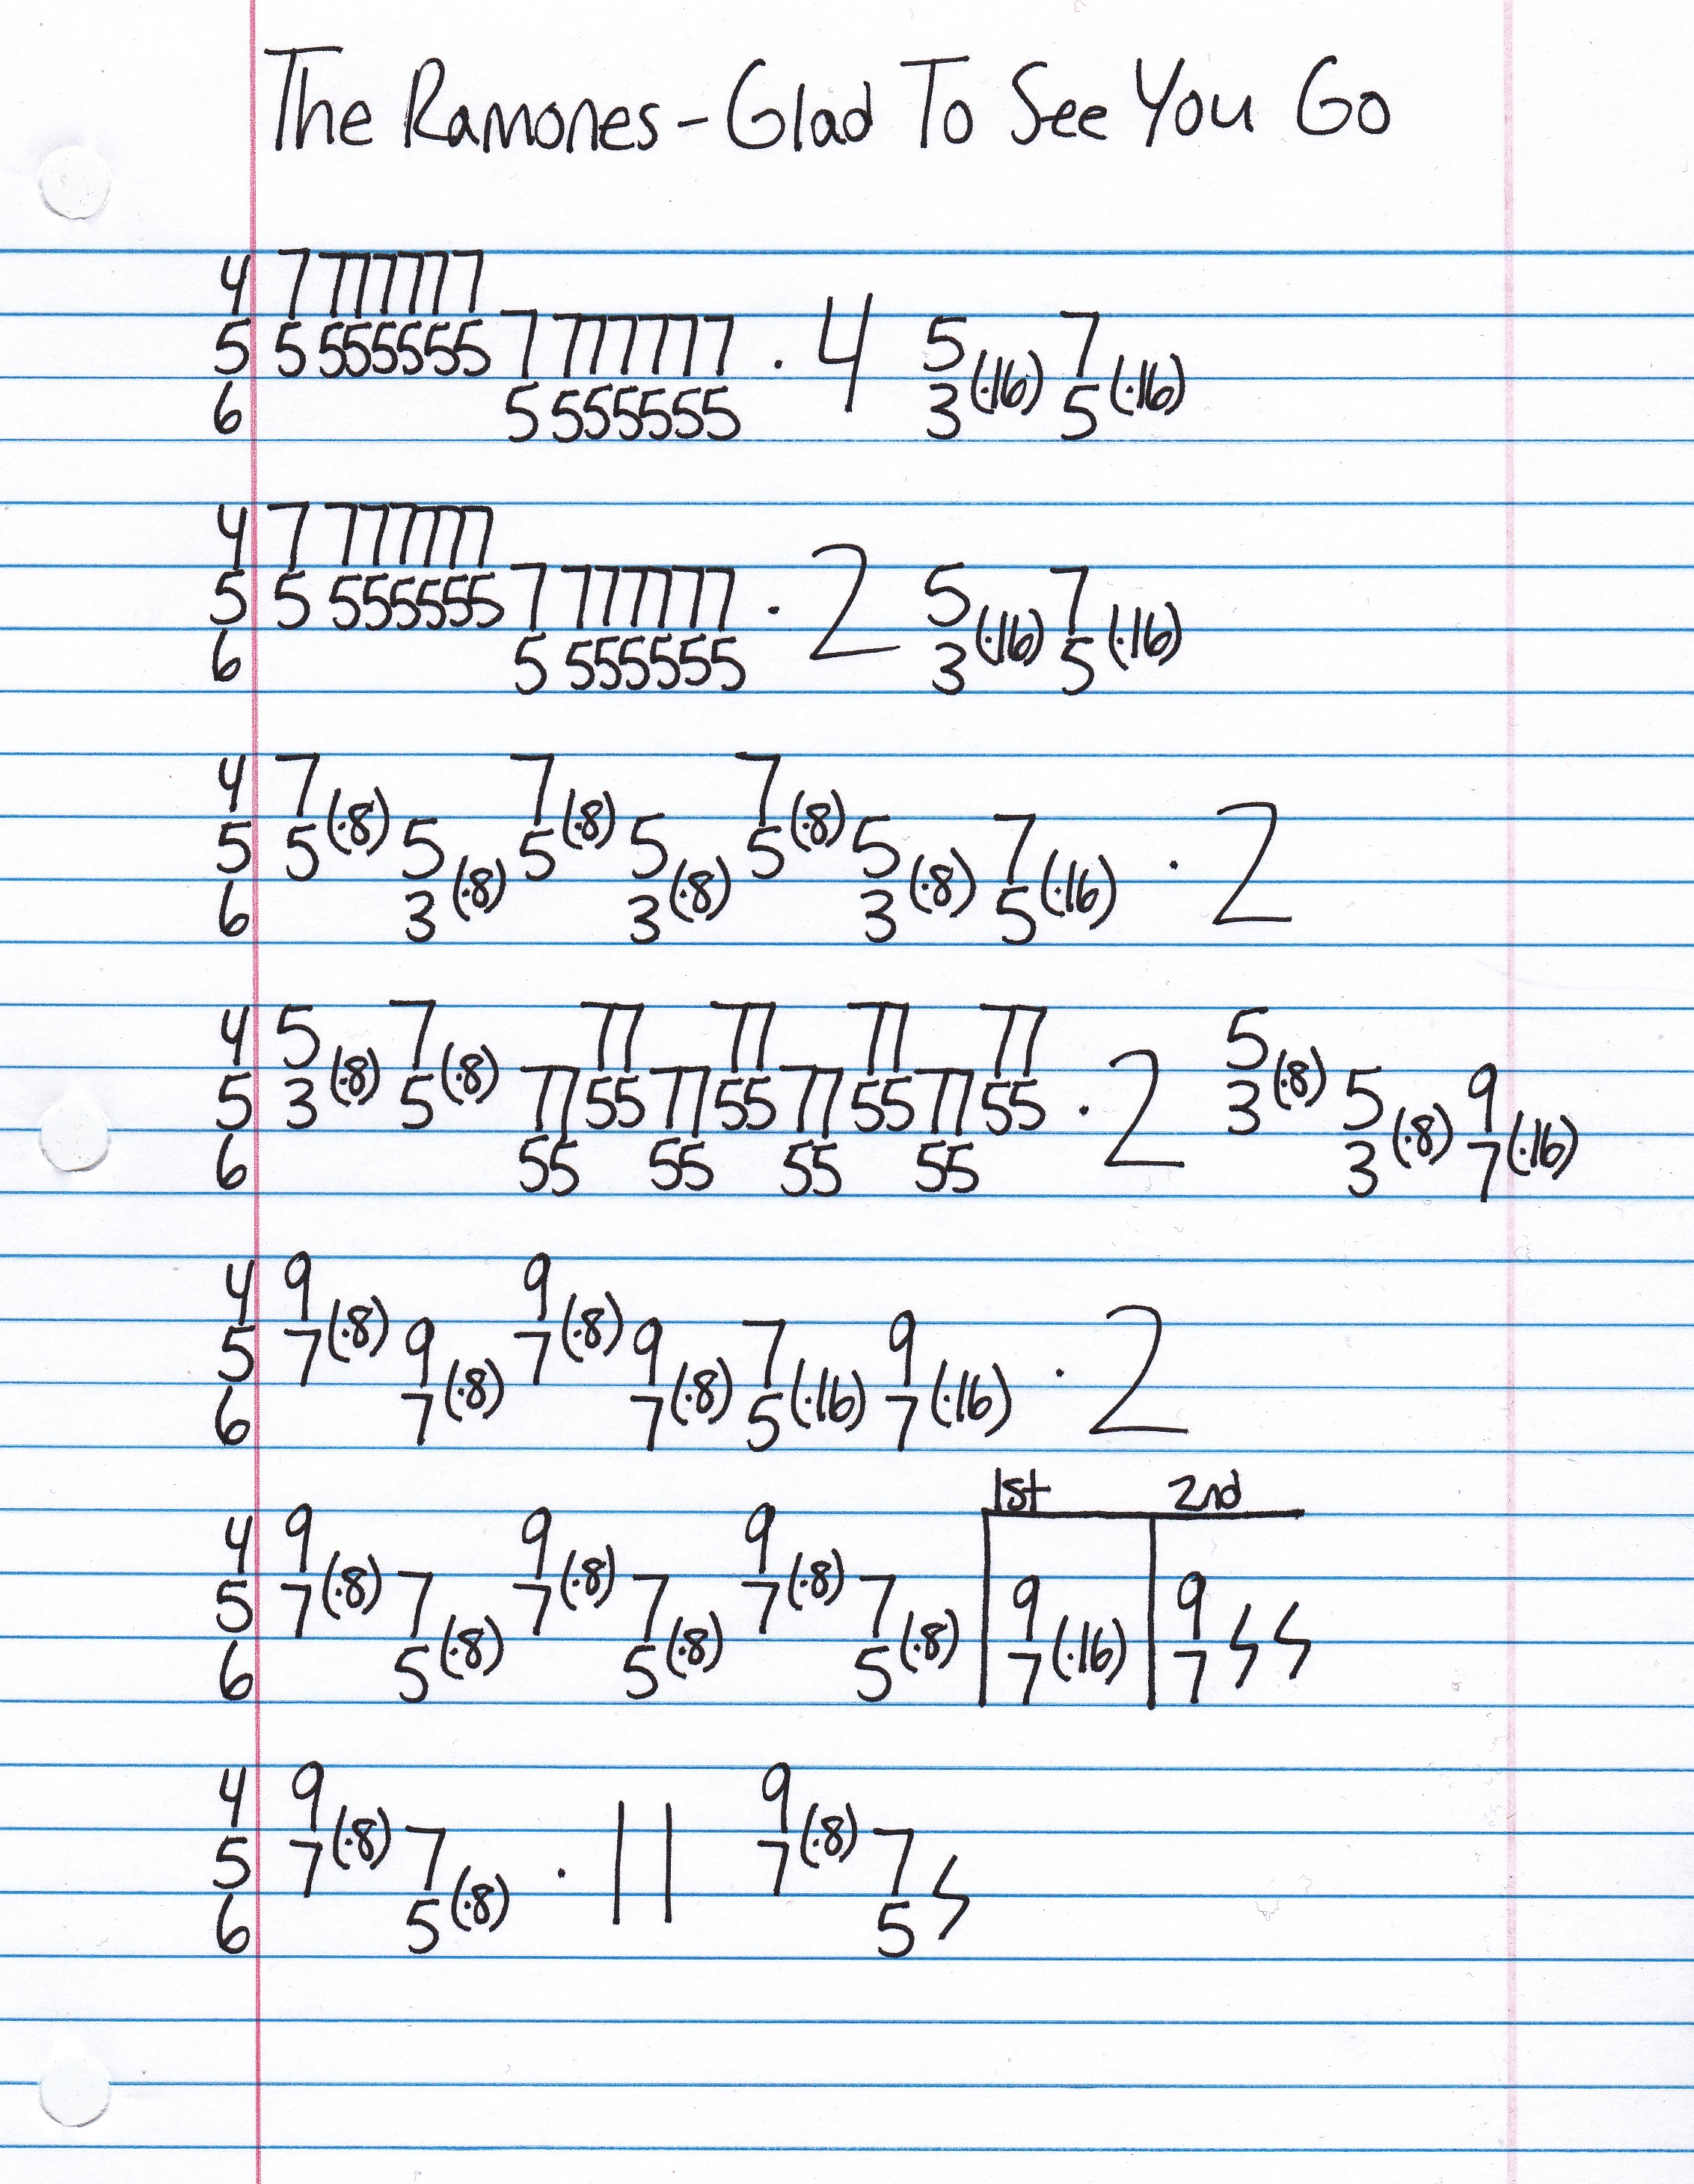 The Ramones - Glad To See You Go
4 7 777777
5 5 555555 7 777777 . 4 5 7
6 5 555555 3 (·16) 5 (·16)
4 7 777777
5 5 555555 7 777777 . 2 5 7
6 5 555555 3 (·16) 5 (·16)
4 7 7 7
5 5 (·8) 5 5 (·8) 5 5 (·8) 5 7 · 2
6 3 (·8) 3 (·8) 3 (·8) 5 (·16)
4 5 7 77 77 77 77 5
5 3 (·8) 5 (·8) 77 55 77 55 77 55 77 55 . 2 3 (·8) 5 9
6 55 55 55 55 3 (·8) 7 (·16)
4 9 9
5 7 (·8) 9 7 (·8) 9 7 9 · 2
6 7 (·8) 7 (·8) 5 (·16) 7 (·16)
1st 2nd
4 9 9 9
5 7 (·8) 7 7 (·8) 7 7 (·8) 7 9 9
6 5 (·8) 5 (·8) 5 (·8) 7 (·16) 7
4 9 9
5 7 (·8) 7 · 11 7 (·8) 7
6 5 (·8) 5